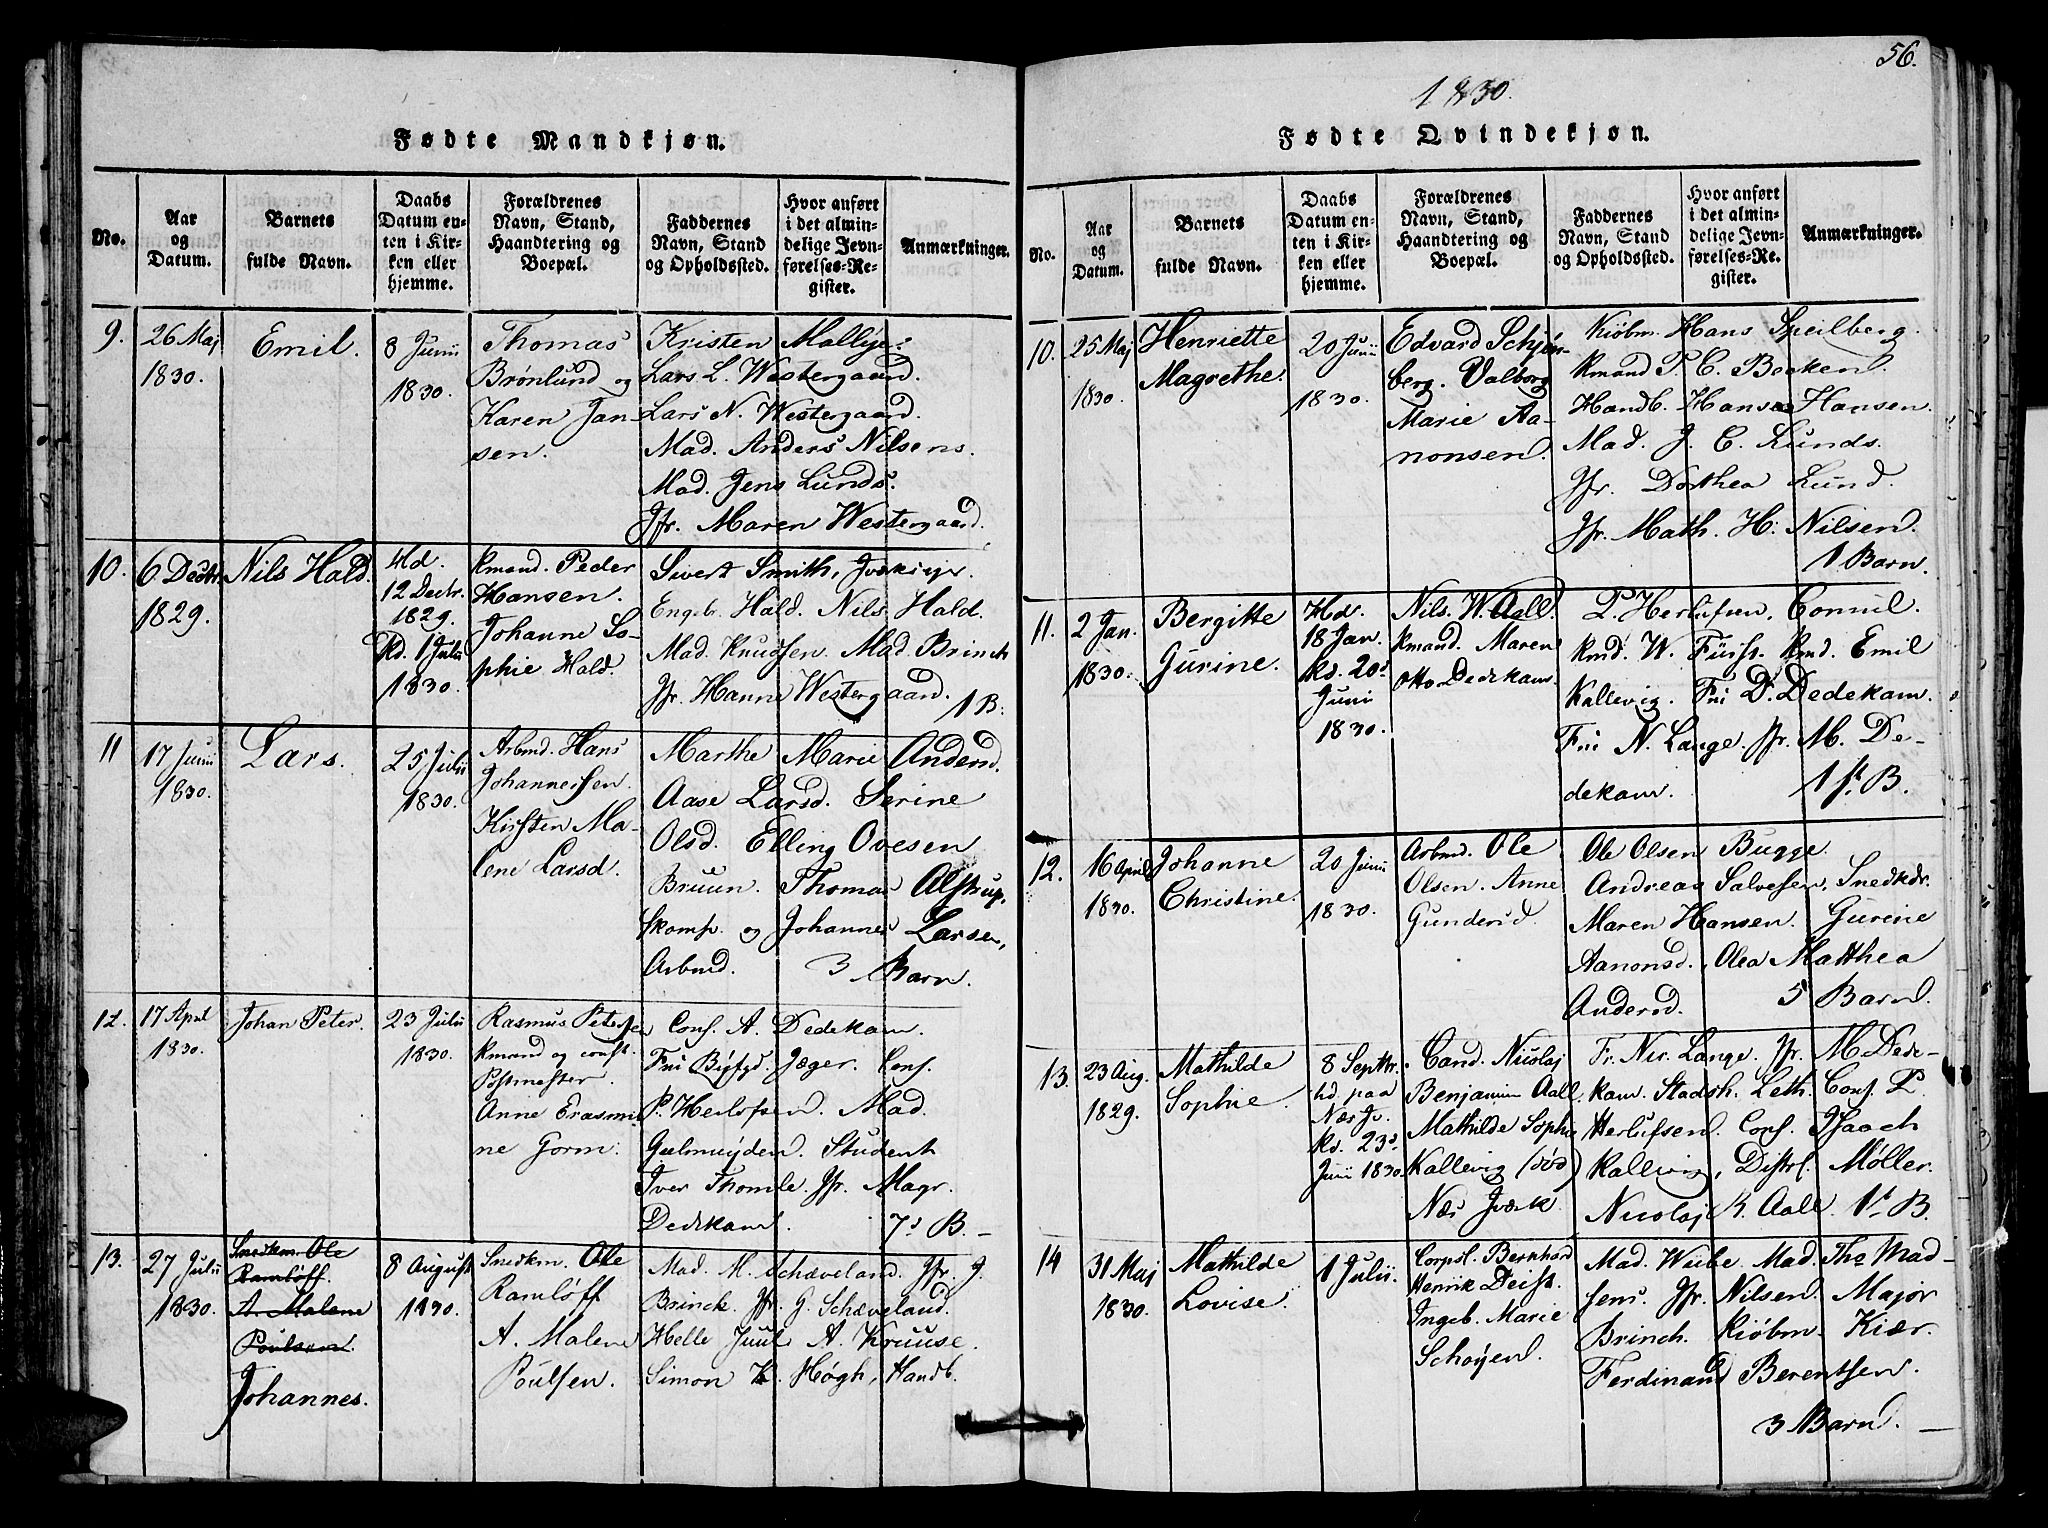 56.
1830.
Fødte Mandkjøn.
No.
Aar
og
Datum.
Barnets
fulde Navn.
Daabs
Datum en-
ten i Kir-
ken eller
hjemme.
Forældrenes
Navn, Stand,
Haandtering og
Boepæl.
Faddernes
Navn, Stand
og Opholdssted.
Hvor anført
i det almin-
delige Jevn-
førelses-Re-
gister.
Anmærkninger.
9.
26 Maj
1830.
Emil.
8 Junii
1830.
Thomas
Brönlund og
Karen Jan-
sen.
Kristen
Lars L. Westergaard.
Lars N. Westergaard.
Mad. Anders Nilsens.
Mad. Jens Lunds.
Jfr. Maren Westergaard.
10.
6 Decbr.
1829.
Nils Hald.
Hd.
12 Decbr.
1829.
Kd. 1 Julii
1830.
Kmand. Peder
Hansen.
Johanne So-
phie Hald.
Sivert Smith,
Engeb. Hald. Nils Hald.
Mad. Knudsen. Mad. Brinch
Jfr. Hanne Westergaard.
1 B:
11
17 Junii
1830.
Lars.
25 Julii
1830.
Arbmd. Hans
Johannessen.
Kirsten Ma-
lene Larsd.
Marthe Marie Andersd.
Aase Larsd. Serine
Olsd. Elling Ovesen
Bruun. Thomas Alstrup,
Skomr. og Johannes Larsen,
Arbmd. 3 Barn.
12.
17 April
1830.
Johan Peter.
23 Julii
1830.
Rasmus Petersen
Kmand og const.
Postmester.
Anne Erasmi-
ne Gorm.
Cons. A. Dedekam.
Fru Byfgd. Jæger. Cons.
P. Herlofsen. Mad.
Gjelmuyden. Student
Iver Thomle. Jfr. Magr.
Dedekam. 7s B.-
13.
27 Julii
1830.
Snedkm. Ole
Ramløff
A. Malene
Poulsen.
Johannes.
8 August
1830.
Snedkm. Ole
Ramløff
A. Malene
Poulsen.
Mad. M. Schæveland. Jfr. J.
Brinck. Jfr. G. Schæveland.
Helle Juul A. Kruuse.
Simon K. Høgh, Handb.
Fødte Qvindekjøn.
No.
Aar
og
Datum.
Barnets
fulde Navn.
Daabs
Datum en-
ten i Kir-
ken eller
hjemme.
Forældrenes
Navn, Stand,
Haandtering og
Boepæl.
Faddernes
Navn, Stand
og Opholdssted.
Hvor anført
i det almin-
delige Jevn-
førelses-Re-
gister.
Anmærkninger.
10.
25 Maj
1830.
Henriette
Magrethe.
20 Junii
1830.
Edvard Schjön-
berg. Valborg
Marie Aa-
nonsen.
Kiöbm. Hans Speilberg.
Kmand P. C. Becken.
Handb. Hans Hansen.
Mad. J. C. Lunds.
Jfr. Dorthea Lund.
Jfr. Math. H: Nilsen.
1 Barn.
11.
2 Jan.
1830.
Bergitte
Gurine.
Hd.
18 Jan.
Kd. 20s
Juni
1830.
Nils. W. Aall.
Kmand. Maren
Otto Dedekam.
P. Herlufsen, Consul.
Kmd. W. Fürst. Kmd. Emil
Kallevig. Fru D. Dedekam.
Fru N. Lange. Jfr. M. De-
dekam. 1 st. B.
12.
16 April
1830.
Johanne
Christine.
20 Junii
1830.
Arbmd. Ole
Olsen. Anne
Gundersd
Ole Olsen Bugge.
Andreas Salvesen, Snedkdr.
Maren Hansen. Gurine
Aanonsd. Olea Matthea
Andersd. 5 Barn.
13.
23 Aug.
1829.
Mathilde
Sophie.
8 Septbr.
hd paa
Næs Jv.
Kd. 23s
Junii 1830.
Cand. Nicolaj
Benjamin Aall,
Mathilde Sophie
Kallevig (död)
Næs Jværk
Fr. Nic. Lange. Jfr. M. Dede-
kam. Stadsh. Leth. Cons. P.
Herlufsen. Cons. Isaach
Kallevig, Distrl. Møller.
Nicolaj R. Aall. 1st. B.
14
31 Maj
1830.
Mathilde
Lovise.
1 Julii.
Corpsl. Bernhard
Henrik Deist.
Ingeb. Marie
Schøyen.
Mad. Wiibe Mad. Ths Mad-
sens. Jfr. Nilsen. Major
Brinch. Kiöbm. Kiær.
Ferdinand Berentsen.
3 Barn.-